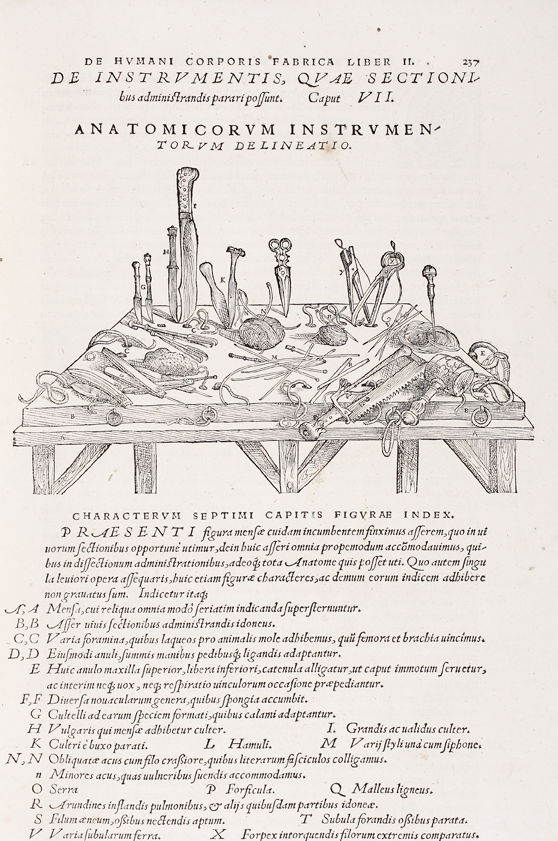 DE HVMANI CORPORIS FABRICA LIBER II. 237
DE INSTRVMENTIS, QVAE SECTIONI-
bus administrandis parari possunt. Caput VII.
ANATOMICORVM INSTRVMEN-
TORVM DELINEATIO.
CHARACTERVM SEPTIMI CAPITIS FIGVRAE INDEX.
PRAESENTI figura mensæ cuidam incumbentem finximus asserem, quo in ui
uorum sectionibus opportunè utimur, dein huic asseri omnia propemodum accõmodauimus, qui-
bus in dissectionum administrationibus, adeoq́; tota Anatome quis posset uti. Quo autem singu
la leuiori opera assequaris, huic etiam figuræ characteres, ac demum eorum indicem adhibere
non grauatus sum. Indicetur itaq́;
A, A Mensa, cui reliqua omnia modò seriatim indicanda supersternuntur.
B, B Asser uiuis sectionibus administrandis idoneus.
C, C Varia foramina, quibus laqueos pro animalis mole adhibemus, quũ femora et brachia uincimus.
D, D Eiusmodi anuli, summis manibus pedibusq́; ligandis adaptantur.
E Huic anulo maxilla superior, libera inferiori, catenula alligatur, ut caput immotum seruetur,
ac interim neq́; uox, neq́; respiratio uinculorum occasione præpediantur.
F, F Diuersa nouacularum genera, quibus spongia accumbit.
G Cultelli ad earum speciem formati, quibus calami adaptantur.
H Vulgaris qui mensæ adhibetur culter. I. Grandis ac ualidus culter.
K Cultri è buxo parati. L Hamuli. M Varij styli unà cum siphone.
N, N Obliquatæ acus cum filo crassiore, quibus literarum fasciculos colligamus.
n Minores acus, quas uulneribus suendis accommodamus.
O Serra P Forficula. Q Malleus ligneus.
R Arundines inflandis pulmonibus, & alijs quibusdam partibus idoneæ.
S Filum æneum, ossibus nectendis aptum. T Subula forandis ossibus parata.
V Varia subularum ferra. X Forpex intorquendis filorum extremis comparatus.